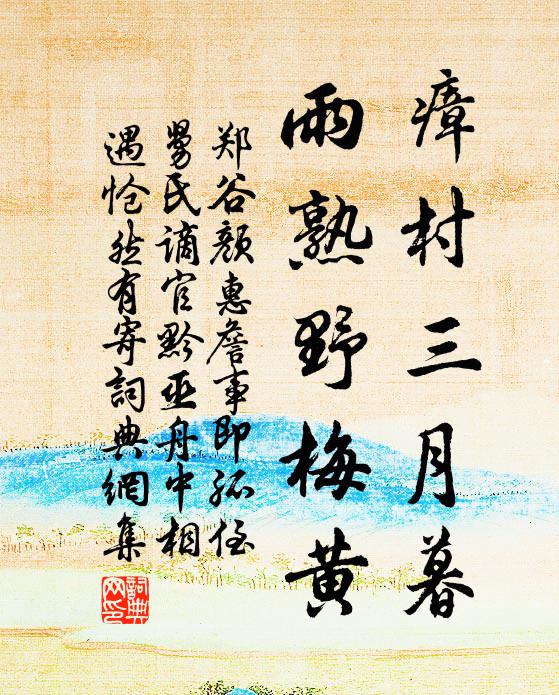 瘴村三月暮
雨熟野梅黄
郑谷颜惠詹事即孤侄
舅氏谪官黔巫舟中相
遇怆然有寄詞典網集
詞典
网印